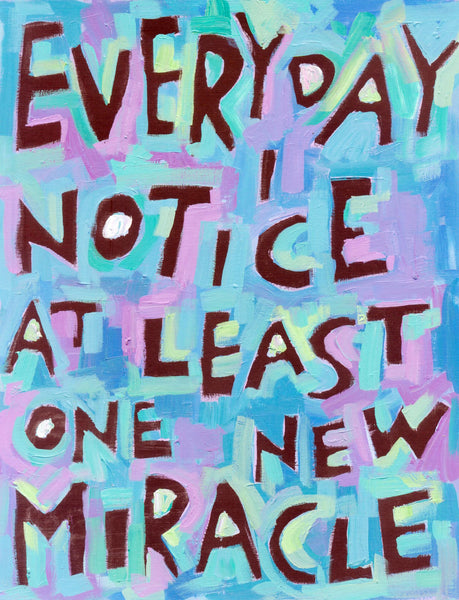 EVERYDAY
I
NOTICE
AT LEAST
ONE NEW
MIRACLE